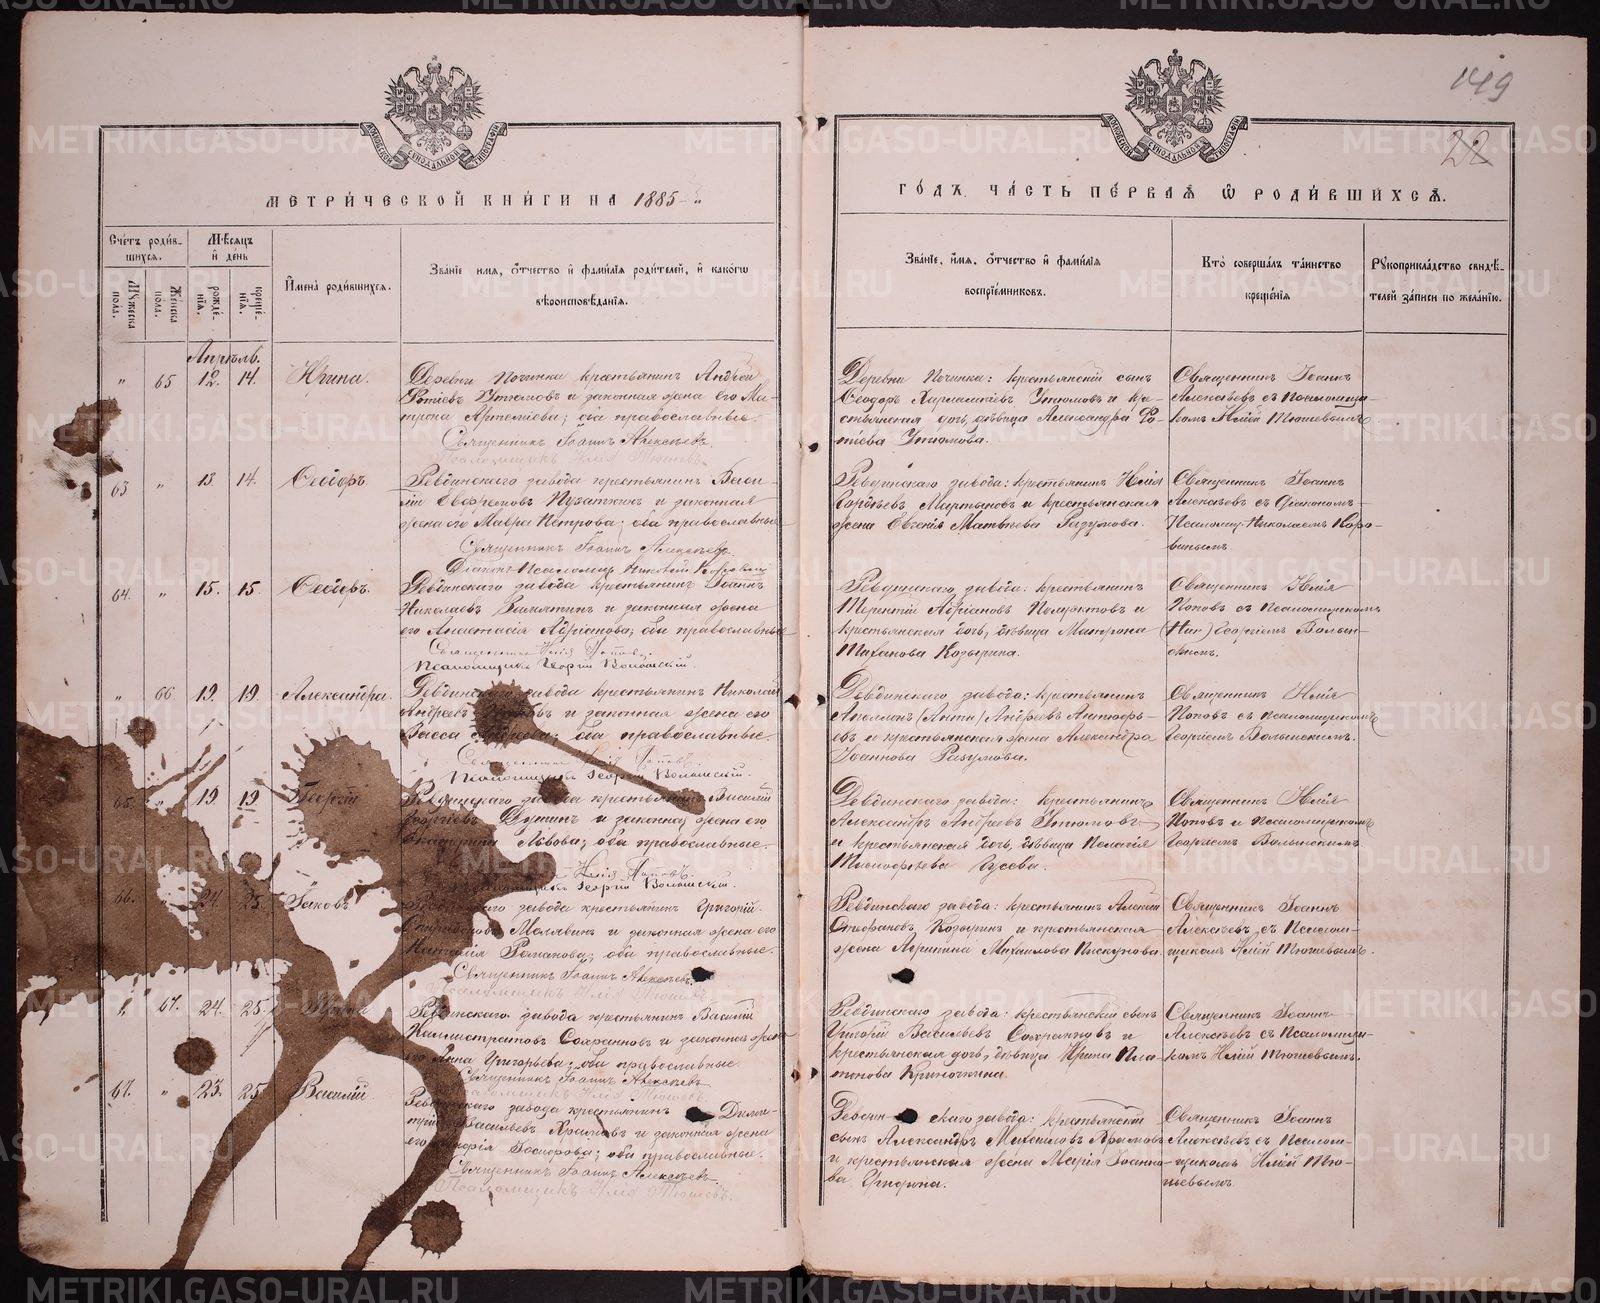 149
22
МЕТРИ́ЧЕСКОЙ КНИ́ГИ НА 1885
ГО́ДЪ ЧА́СТЬ ПЕ́РВАѦ Ѡ РОДИ́ВШИХСѦ.
Сче́тъ роди́в-
шихсѧ.
Мꙋжеска пола.
Же́нска пола.
Мѣ́сѧцъ и҆ де́нь
рожде́-нїѧ.
креще́-нїѧ.
И҆мена̀ роди́вшихсѧ.
Зва́нїе имѧ, ѻ҆́тчество и҆ фами́лїѧ роди́телей, и҆ како́гѡ
вѣроисповѣ́данїѧ.
Зва́нїе, и҆́мѧ, ѻ҆́тчество и҆ фами́лїѧ
воспрїе́мниковъ.
Кто̀ соверша́лъ та́инство
креще́нїѧ
Рꙋкоприкла́дство свидѣ́-
телей за́писи по жела́нїю.
Апрѣль.
" 65 12. 14. Ирина.
Деревни Починка крестьянинъ Андрей
Фотіевъ Утюмовъ и законная жена его Ма-
трона Артеміева; оба православные.
Священникъ Іоаннъ Алексѣевъ.
Псаломщикъ Илія Тюшевъ.
Деревни Починка: крестьянскій сынъ
Ѳеодоръ Харлампіевъ Утюмовъ и кре-
стьянская дочь, дѣвица Александра Фо-
тіева Утюмова.
Священникъ Іоаннъ
Алексѣевъ съ псаломщи-
комъ Иліей Тюшевымъ
63 " 13. 14. Ѳеодоръ.
Ревдинскаго завода крестьянинъ Васи-
лій Евфремовъ Пузаткинъ и законная
жена его Мавра Петрова; оба православные
Священникъ Іоаннъ Алексѣевъ.
Діаконъ-Псаломщ. Николай Коровинъ
Ревдинскаго завода: крестьянинъ Илія
Мартыновъ и крестьянская
жена Евгенія Матвѣева Разумова.
Священникъ Іоаннъ
Алексѣевъ съ Діакономъ-
Псаломщ. Николаемъ Коро-
винымъ.
64. " 15. 15. Ѳеодоръ.
Ревдинскаго завода крестьянинъ Іоаннъ
Николаевъ Замятинъ и законная жена
его Анастасія Адріанова; оба православные
Священникъ Илія Поповъ.
Псаломщикъ Георгій Волынскій.
Ревдинскаго завода: крестьянинъ
Терентій Адріановъ Полуэктовъ и
крестьянская дочь, дѣвица Матрона
Козырина.
Священникъ Илія
Поповъ съ Псаломщикомъ
Георгіемъ Волын-
скимъ.
" 66 19. 19. Александра.
Ревдинскаго завода крестьянинъ Николай
Андреевъ и законная жена его
Васса оба православные.
Священникъ Илія Поповъ.
Псаломщикъ Георгій Волынскій.
Ревдинскаго завода: крестьянинъ
Андреевъ
и крестьянская жена Александра
Іоаннова Разумова.
Священникъ Илія
Поповъ съ псаломщикомъ
Георгіемъ Волынскимъ.
65. " 19. 19 Георгій
Ревдинскаго завода крестьянинъ Василій
Георгіевъ и законная жена его
Екатерина Львова; оба православные.
Илія Поповъ.
Псаломщикъ Георгій Волынскій.
Ревдинскаго завода: крестьянинъ
Александръ Андреевъ Утюмовъ
и крестьянская дочь, дѣвица Пелагія
Тимофѣева Гусева.
Священникъ Илія
Поповъ и Псаломщикомъ
Георгіемъ Волынскимъ
66. " 24. 25. Іаковъ
завода крестьянинъ Григорій
Малявинъ и законная жена его
Наталія Романова; оба православные.
Священникъ Іоаннъ Алексѣевъ.
Псаломщикъ Илія Тюшевъ.
Ревдинскаго завода: крестьянинъ Алексій
Стефановъ Козыринъ и крестьянская
жена Агрипина Михаилова Пискунова.
Священникъ Іоаннъ
Алексѣевъ съ Псалом-
щикомъ Иліей Тюшевымъ.
" 67. 24. 25.
Ревдинскаго завода крестьянинъ Василій
Каллистратовъ Сохранновъ и законная жена
его Анна Григорьева; оба православные
Священникъ Іоаннъ Алексѣевъ
Псаломщикъ Илія Тюшевъ.
Ревдинскаго завода: крестьянскій сынъ
Григорій Васильевъ Сохранновъ и
крестьянская дочь, дѣвица Ирина Пла-
тонова Криночкина.
Священникъ Іоаннъ
Алексѣевъ съ Псаломщи-
комъ Иліей Тюшевымъ.
67. " 23. 25. Василій
Ревдинскаго завода крестьянинъ Дими-
трій Васильевъ Храмовъ и законная жена
его оба православные.
Священникъ Іоаннъ Алексѣевъ.
Псаломщикъ Илія Тюшевъ.
Ревдин скаго завода: крестьянскій
сынъ Александръ Михаиловъ Храмовъ
и крестьянская жена Марія Іоанно-
ва
Священникъ Іоаннъ
Алексѣевъ съ Псалом-
щикомъ Иліей Тю-
шевымъ.
METRIKI.GASO-URAL.RU